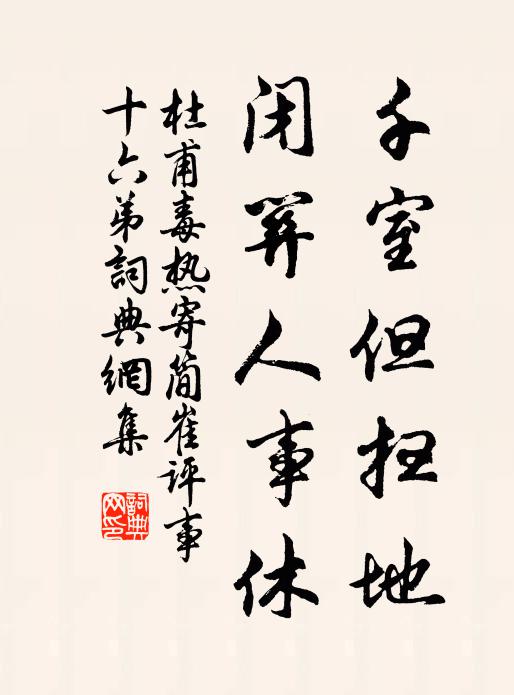 千室但扫地
闭关人事休
杜甫毒热寄简崔评事
十六弟詞典網集
詞典网印